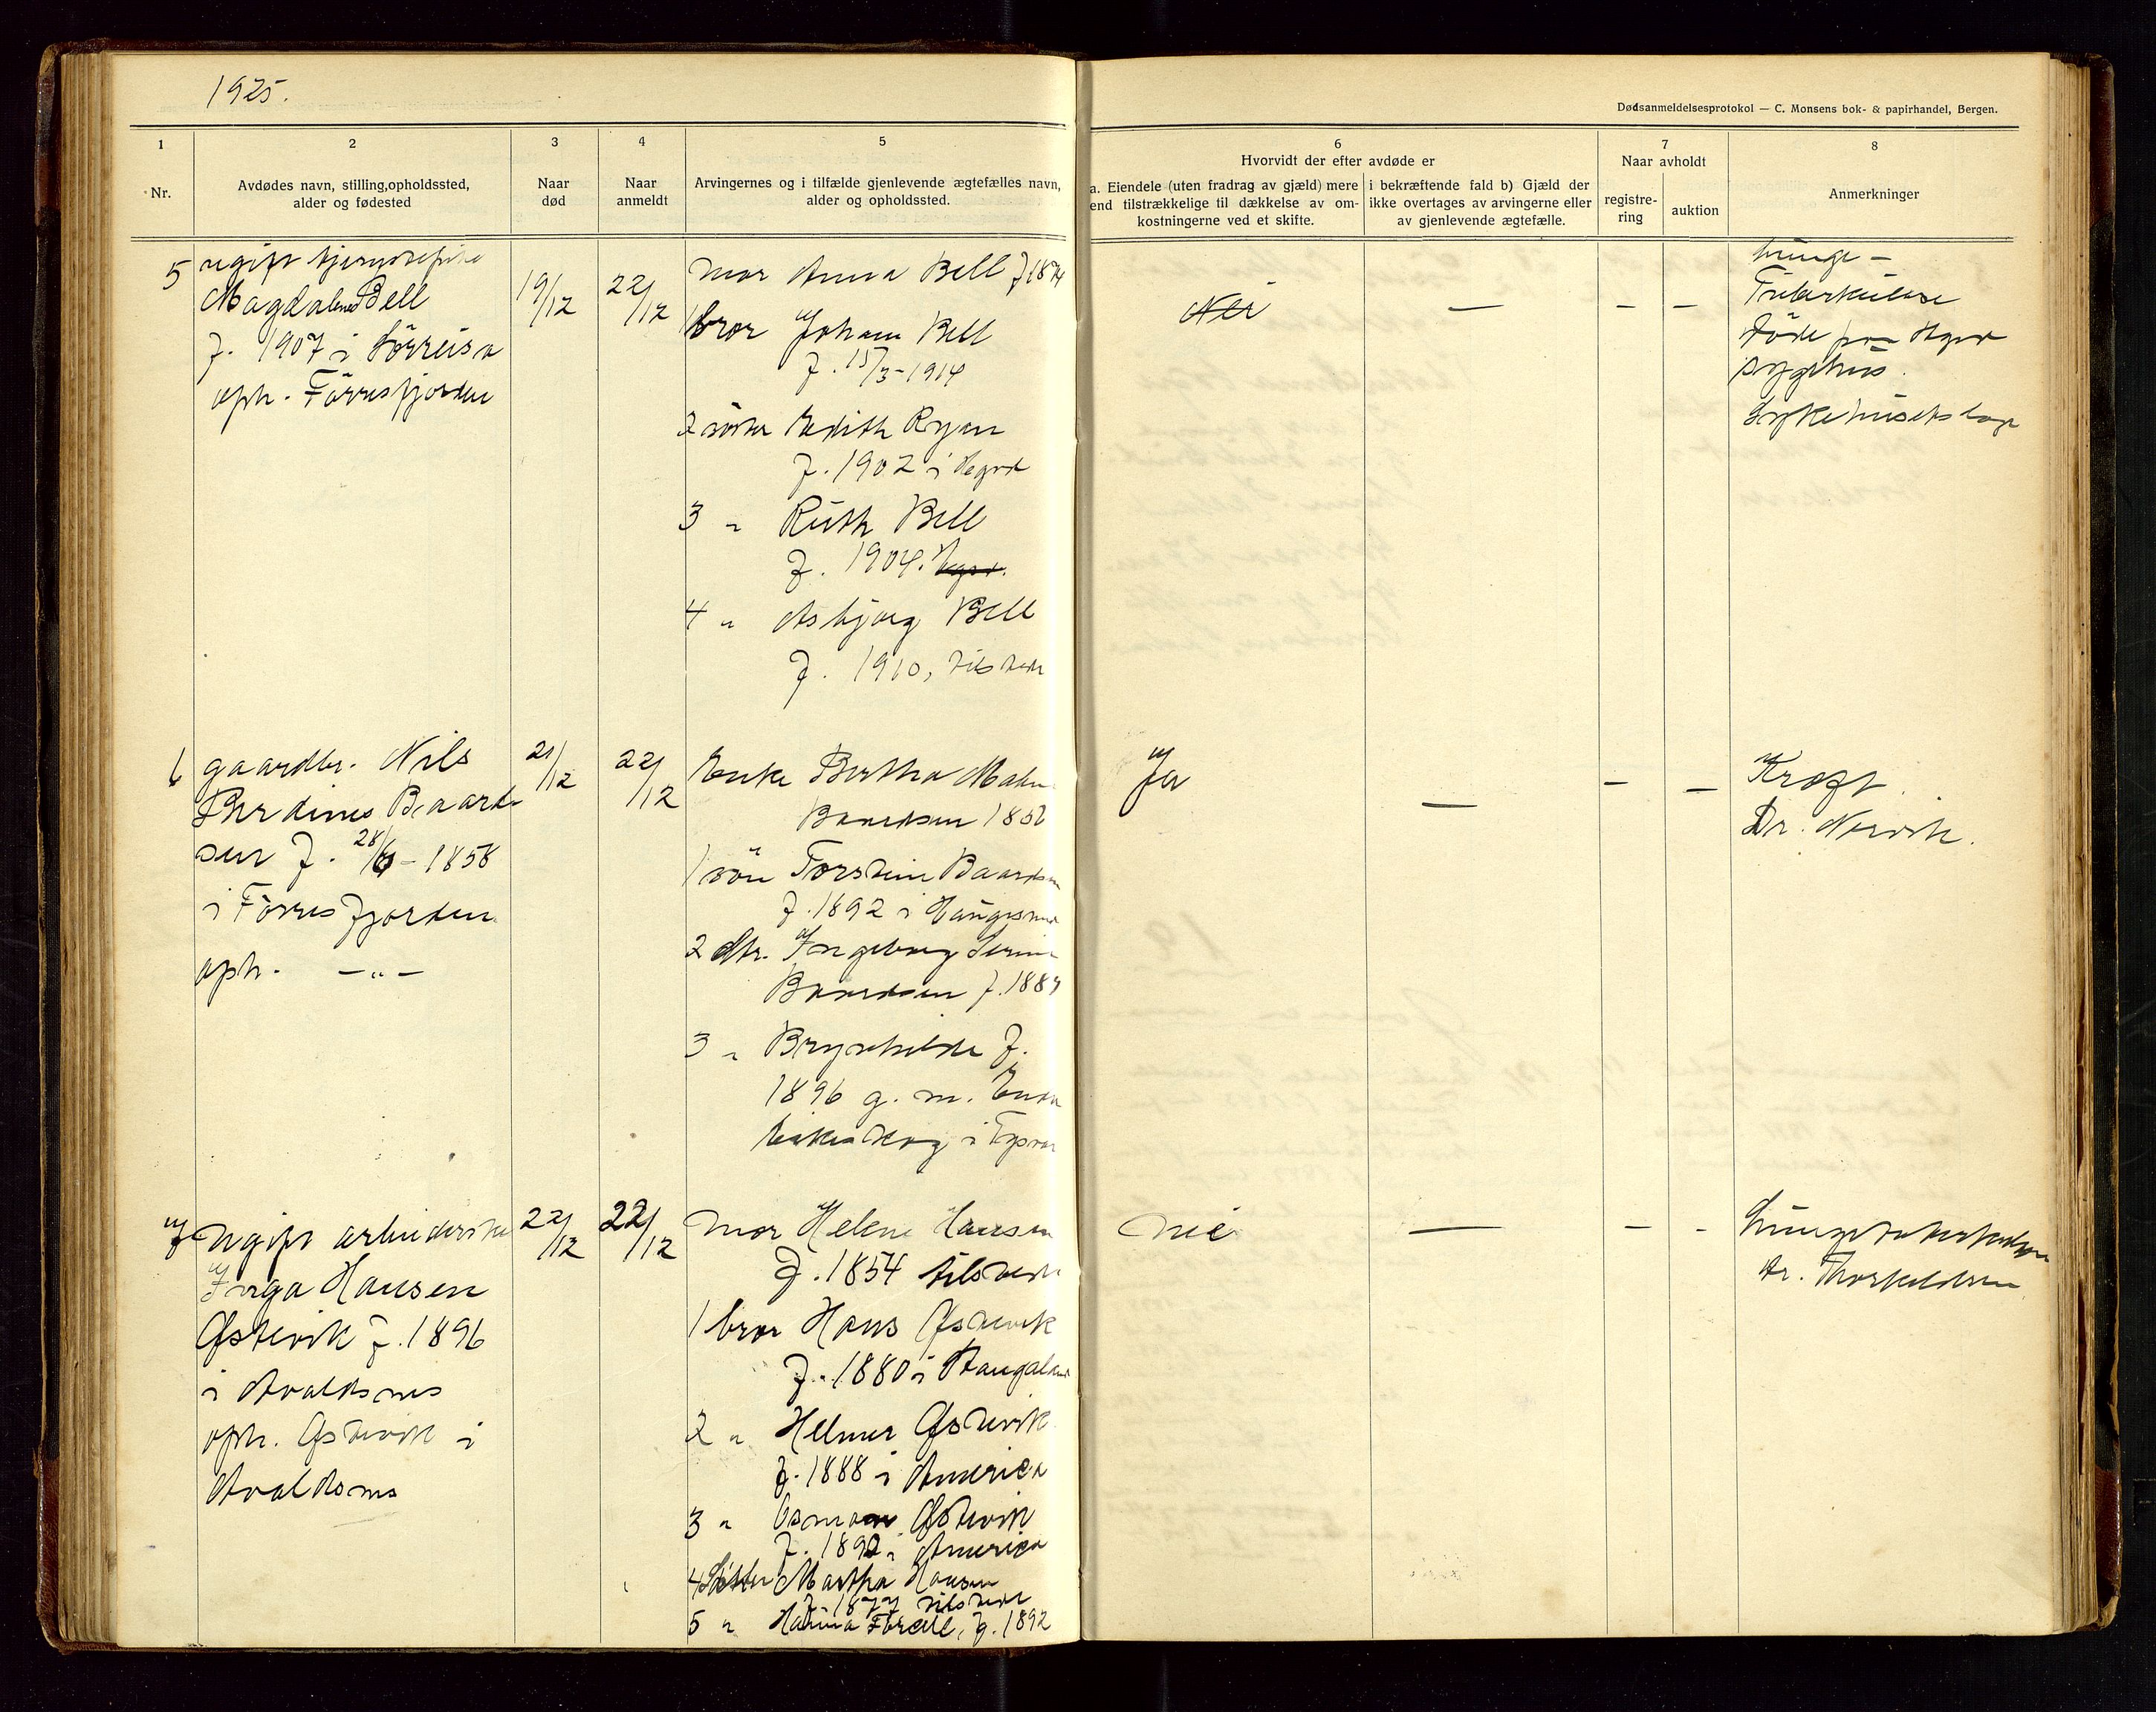 1925.
Dødsanmeldelsesprotokol — C. Monsens bok- & papirhandel, Bergen.
1
Nr.
2
Avdødes navn, stilling, opholdssted,
alder og fødested
3
Naar
død
4
Naar
anmeldt
5
Arvingernes og i tilfælde gjenlevende ægtefælles navn,
alder og opholdssted.
6
Hvorvidt der efter avdøde er
a. Eiendele (uten fradrag av gjæld) mere
end tilstrækkelige til dækkelse av om-
kostningerne ved et skifte.
i bekræftende fald b) Gjæld der
ikke overtages av arvingerne eller
av gjenlevende ægtefælle.
7
Naar avholdt
registre-
ring
auktion
8
Anmerkninger
5
ugift
Magdalene Bell
f. 1907 i Sörreisa
oph. Förresfjorden
19/12
22/12
Mor Anna Bell f. 1874
1 bror Johan Bell
f. 15/3-1914
2 söster Edith Ryan
f. 1902 i Hgsd
3 " Ruth Bell
f. 1904.
4 " Asbjørg Bell
f. 1910, tilstede
Nei
—
–
–
Lunge-
Tuberkulose
döde paa Hgsd
sygehus.
Sykehusets læge
6
gaardbr. Nils
Berdines Baard-
sen f. 28/6-1858
i Förresfjorden
oph. —"—
21/12
22/12
Enke Bertha Malene
Baardsen
1 sön Torstein Baardsen
f. 1892 i Haugesund
2 dtr. Ingeborg Serine
Baardsen f. 1889
3 " Brynhilde f.
1896 g. m.
i Tysvær
Ja
—
–
–
Kræft.
Dr. Nervik.
7
Ugift arbeiderske
Inga Hansen
Gistevik f. 1896
i Avaldsnes
oph. Gistevik i
Avaldsnes
22/12
22/12
Mor Helene Hansen
f. 1854 tilstede
1 bror Hans Gistevik
f. 1880 i Haugaland
2 " Helmer Gistevik
f. 1888 i America
3 " Osmon Gistevik
f. 1890 i America
4 Söster Martha Hansen
f. 1877 tilstede
5 " f. 1892
nei
—
–
-
Lungetuberkulose
dr. Thorkildsen